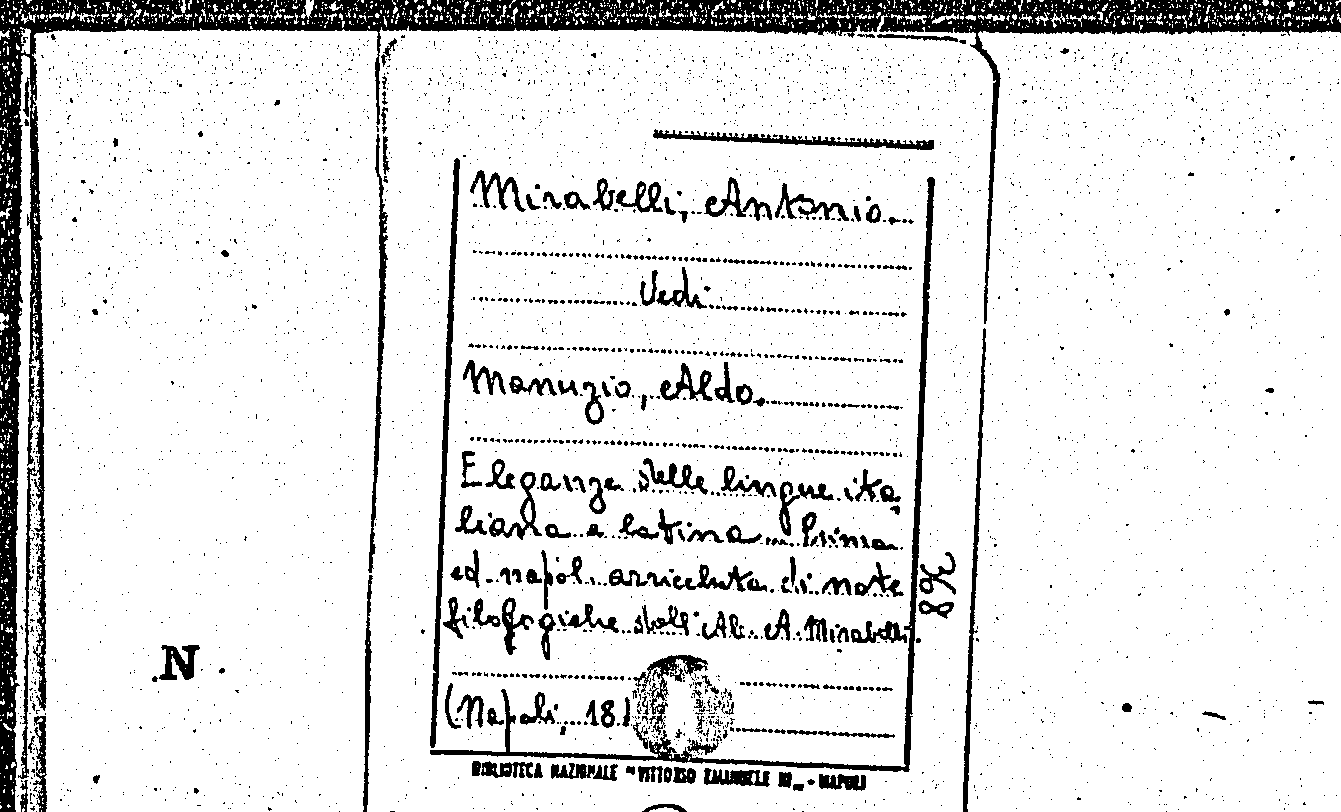 Mirabelli, Antonio.
Vedi
Manuzio, Aldo.
Eleganze delle lingue ita-
liana e latina ... Prima
ed. napol. arricchita di note
filologiche dall' Ab. A. Mirabelli.
(Napoli, 18
368
N
BIBLIOTECA NAZIONALE "VITTORIO EMANUELE III" - NAPOLI